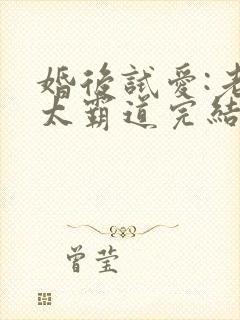 婚後試愛:老
太霸道完結
曾莹